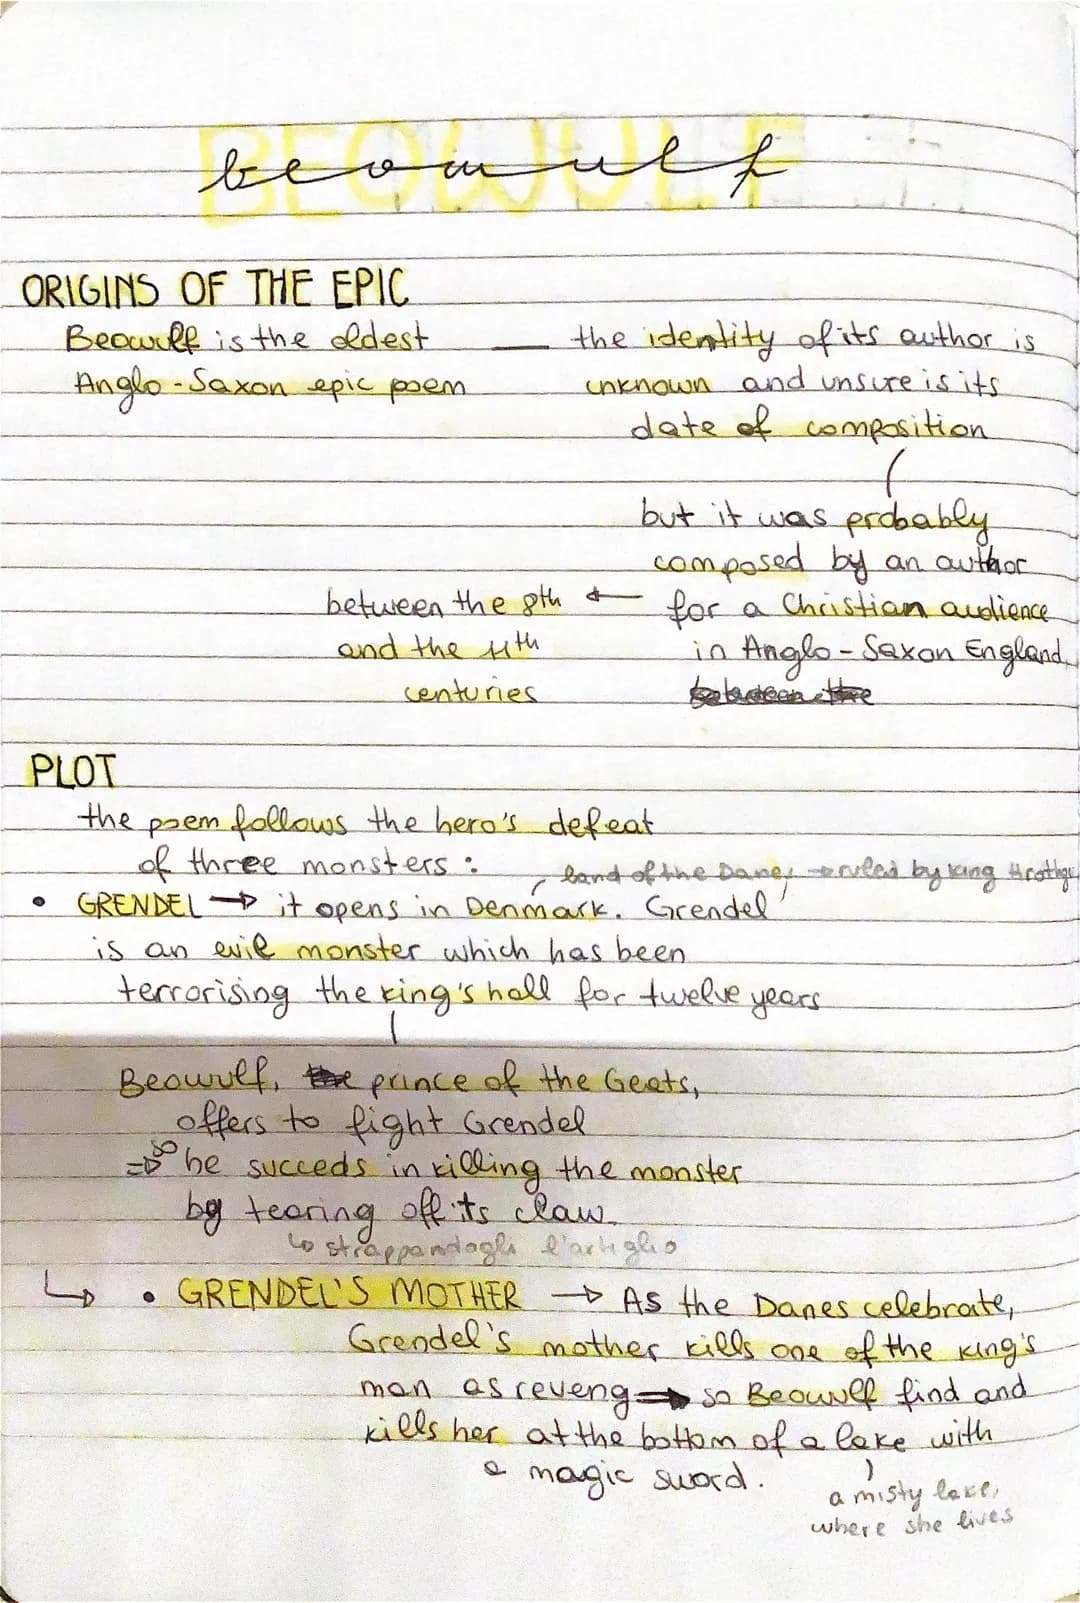 BEOWULF
beowulf
ORIGINS OF THE EPIC
Beowulf is the oldest
Anglo-Saxon epic poem
— the identity of its author is
unknown and unsure is its
date of composition
but it was probably
composed by an author
for a Christian audience
in Anglo-Saxon England
between the
between the 8th
and the 11th
centuries
PLOT
the poem follows the hero's defeat
of three monsters:
land of the Danes → ruled by king Hrothgu
• GRENDEL → it opens in Denmark. Grendel
is an evil monster which has been
terrorising the king's hall for twelve years
Beowulf, the prince of the Geats,
offers to fight Grendel
⇒ so he succeds in killing the monster
by tearing off its claw
↳ strappandogli l'artiglio
↳ • GRENDEL'S MOTHER → As the Danes celebrate,
Grendel's mother kills one of the king's
man as reveng → so Beowulf find and
kills her at the bottom of a lake with
a magic sword.
a misty lake,
where she lives